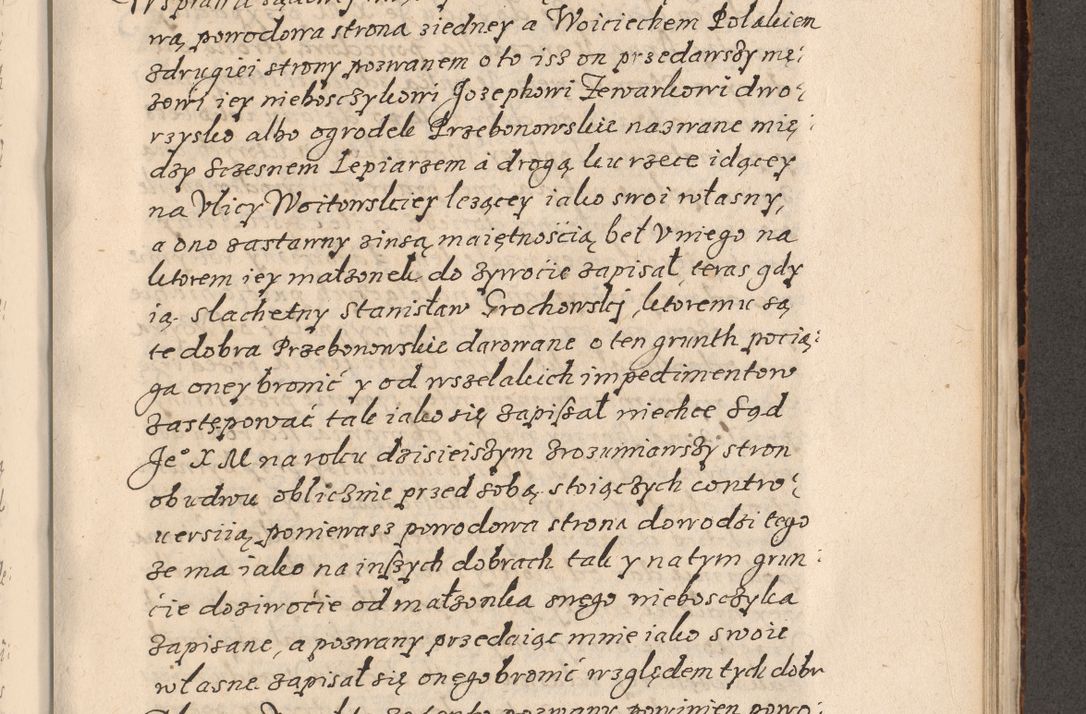 wą, powodowa strona ziedney a Woiciechem Polakiem
zdrugiei strony pozwanem o to isz on przedawszy mę:
zowi iey nieboszczykowi Jozephowi Zewarkowi dwo:
rzysko albo ogrodek Przebonowskie nazwane mię:
dzy Sczesnem Lepiarzem à drogą ku rzece idącey
na Vlicy Woitowskiey lezącey iako swoi własny,
a ono zastawny zinszą maiętnością beł v niego na
ktorem iey małzonek do zywocie zapisał, teras gdy
ią slachetny Stanisław Grochowskj, ktoremu są
te dobra Przebonowskie darowane o ten grunth pocią:
ga oney bronić y od wszelakich impedimentow
zastępować tak iako się zapissał niechce Sąd
Je° X M na roku dzisieiszym zrozumiawszy stron
obudwu oblicznie przed sobą stoiączych contro:
uersiią, poniewasz powodowa strona dowodzi tego
ze ma iako na inszych dobrach tak y na tym grun:
cie doziwocie od małzonka swego nieboszczyka
zapisane, a pozwany przedaiąc mnie iako swoie
własne zapisał się onego bronić względem tych dobr